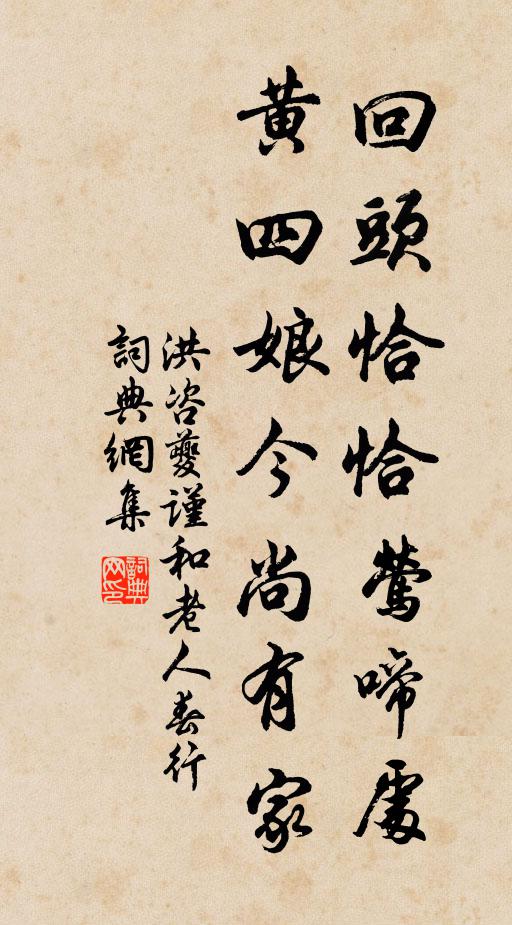 回頭恰恰鶯啼處
黃四娘今尚有家
洪咨夔謹和老人春行
詞典網集
詞典網印